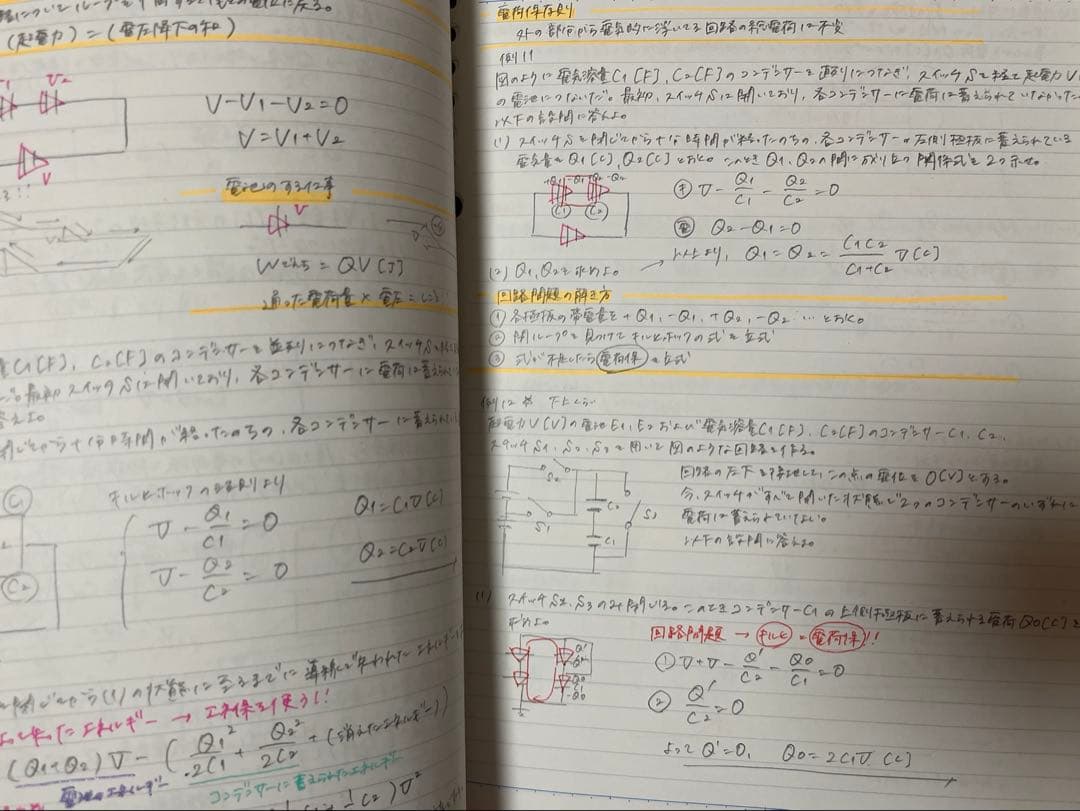 (起電力)=(電圧降下の和)
V-V₁-V₂=0
V=V₁+V₂
電池のする仕事
V
W=QV[J]
通った電荷量×電圧
C₁[F], C₂[F]のコンデンサーを並列につなぎ、スイッチSを
最初スイッチSは開いており、各コンデンサーに電荷は蓄えられて
閉じてから十分時間が経ったのち、各コンデンサーに蓄えられている
キルヒホッフの法則より
V-Q₁/C₁=0
Q₁=C₁V[C]
V-Q₂/C₂=0
Q₂=C₂V[C]
C₂
閉じてから(1)の状態に至るまでに導線で失われたエネルギー
失ったエネルギー → エネ保を使う!!
(Q₁+Q₂)V-(Q₁²/2C₁+Q₂²/2C₂+(消えたエネルギー))
電池のエネルギー
コンデンサーに蓄えられたエネルギー
電荷保存則
外の部分から電気的に浮いてる回路の総電荷は不変
例11
図のように電気容量C₁[F], C₂[F]のコンデンサーを直列につなぎ、スイッチSを経て起電力V
の電池につないだ。最初、スイッチSは開いており、各コンデンサーに電荷は蓄えられていなかった
以下の設問に答えよ。
(1) スイッチSを閉じてから十分時間が経ったのちの、各コンデンサーの左側極板に蓄えられている
電気量をQ₁[C], Q₂[C]とおく。このときQ₁, Q₂の間に成り立つ関係式を2つ示せ。
+Q₁ -Q₁ +Q₂ -Q₂
C₁ C₂
㋖ V-Q₁/C₁-Q₂/C₂=0
電 Q₂-Q₁=0
以上より, Q₁=Q₂=C₁C₂/(C₁+C₂) V[C]
(2) Q₁, Q₂を求めよ。
回路問題の解き方
① 各極板の帯電量を+Q₁, -Q₁, +Q₂, -Q₂ … とおく。
② 閉ループを見つけてキルヒホッフの式を立式
③ 式が不足したら電荷保を立式
例12
起電力V[V]の電池E₁, E₂および電気容量C₁[F], C₂[F]のコンデンサーC₁, C₂,
スイッチS₁, S₂, S₃を用いて図のような回路を作る。
回路の左下を接地し、この点の電位を0[V]とする。
今、スイッチがすべて開いた状態で2つのコンデンサーのいずれに
電荷は蓄えられていない。
以下の設問に答えよ。
S₂
S₁
C₂
C₁
S₃
(1) スイッチS₂, S₃のみ閉じる。このときコンデンサーC₁の上側極板に蓄えられる電荷Q₀[C]を
求めよ。
回路問題 → キルヒ = 電荷保!!
① V+V-Q'/C₂-Q₀/C₁=0
② Q'/C₂=0
よってQ'=0, Q₀=2C₁V[C]